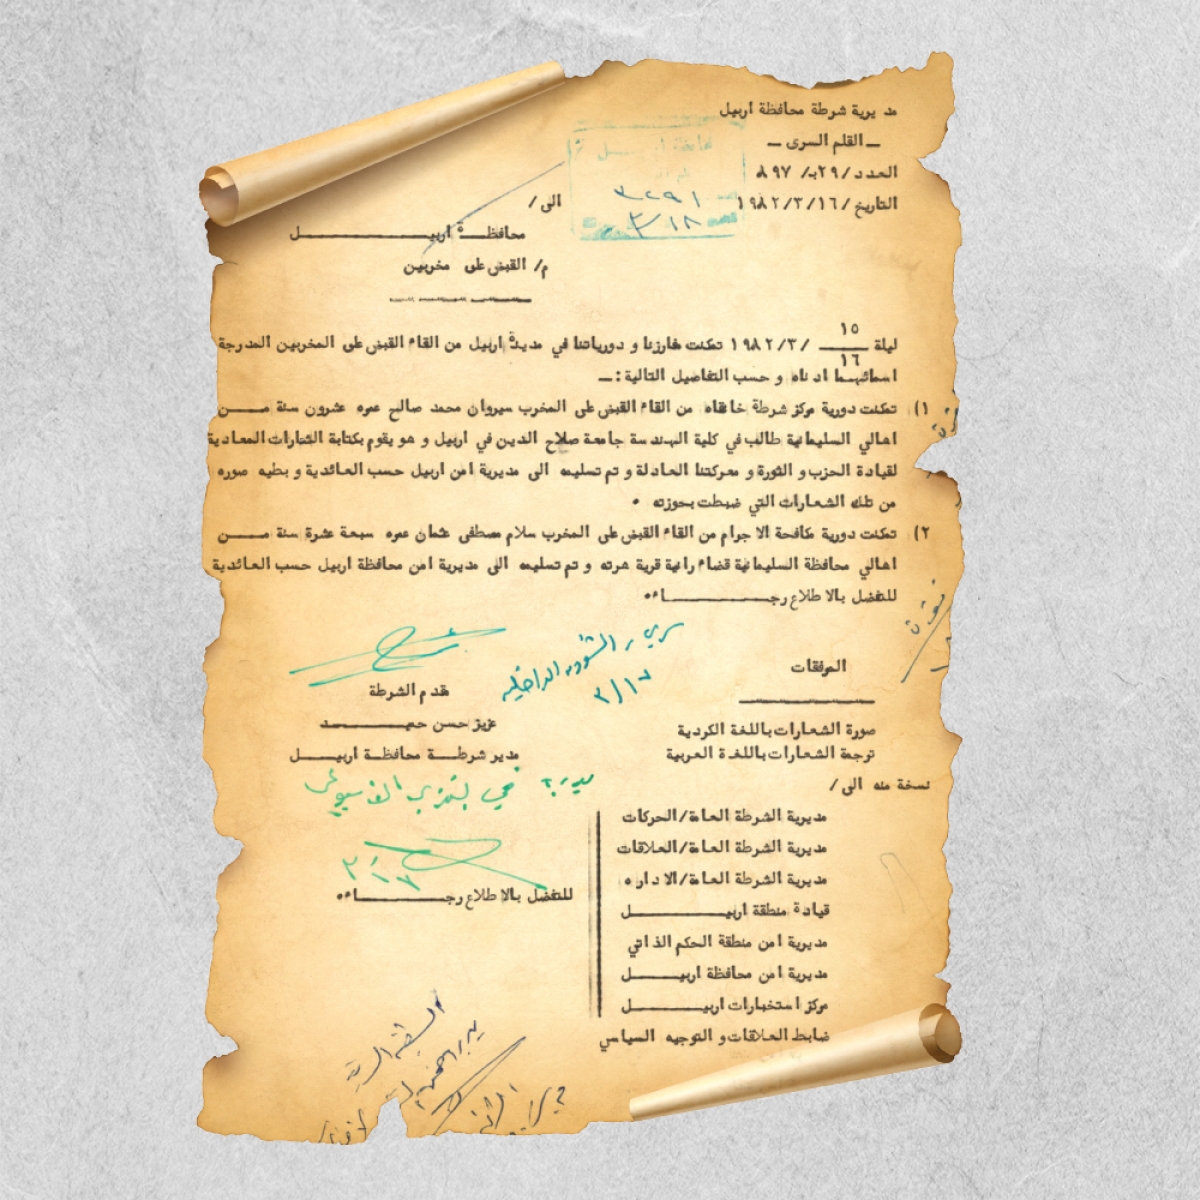 مديرية شرطة محافظة اربيل
ـ القلم السرى ـ
العدد /٢٩ب/ ٨٩٧
التاريخ /١٩٨٢/٣/١٦
٣٢٩١
٣/١٨
الى /
محافظـة اربيـــــل
م/ القبض على مخربين
ليلة ١٥/١٦ /١٩٨٢/٣ تمكنت مفارزنا و دورياتنا في مدينة اربيل من القاء القبض على المخربين المدرجة
اسمائهما ادناه و حسب التفاصيل التالية :ـ
١) تمكنت دورية مركز شرطة خانقاه من القاء القبض على المخرب سيروان محمد صالح عمره عشرون سنة مـــن
اهالي السليمانية طالب في كلية الهندسة جامعة صلاح الدين في اربيل و هو يقوم بكتابة الشعارات المعادية
لقيادة الحزب و الثورة و معركتنا العادلة و تم تسليمه الى مديرية امن اربيل حسب العائدية و بطيه صوره
من تلك الشعارات التي ضبطت بحوزته .
٢) تمكنت دورية مكافحة الاجرام من القاء القبض على المخرب سلام مصطفى عثمان عمره سبعة عشرة سنة مـــن
اهالي محافظة السليمانية قضاء رانية قرية هرته و تم تسليمه الى مديرية امن محافظة اربيل حسب العائدية
للتفضل بالاطلاع رجـــــــاء.
الشؤون الداخلية
٣/١٧
المرفقات
صورة الشعارات باللغة الكردية
ترجمة الشعارات باللغة العربية
مقدم الشرطة
عزيز حسن حميـــد
مدير شرطـة محافظـة اربيـــل
نسخة منه الى /
مديرية الشرطة العامة/الحركات
مديرية الشرطة العامة/العلاقات
مديرية الشرطة العامة/الاداره
قيادة منطقة اربيــــــل
مديرية امن منطقة الحكم الذاتي
مديرية امن محافظة اربيـــل
مركز استخبارات اربيــــــل
ضابط العلاقات و التوجيه السياسي
للتفضل بالاطلاع رجـــــــاء.